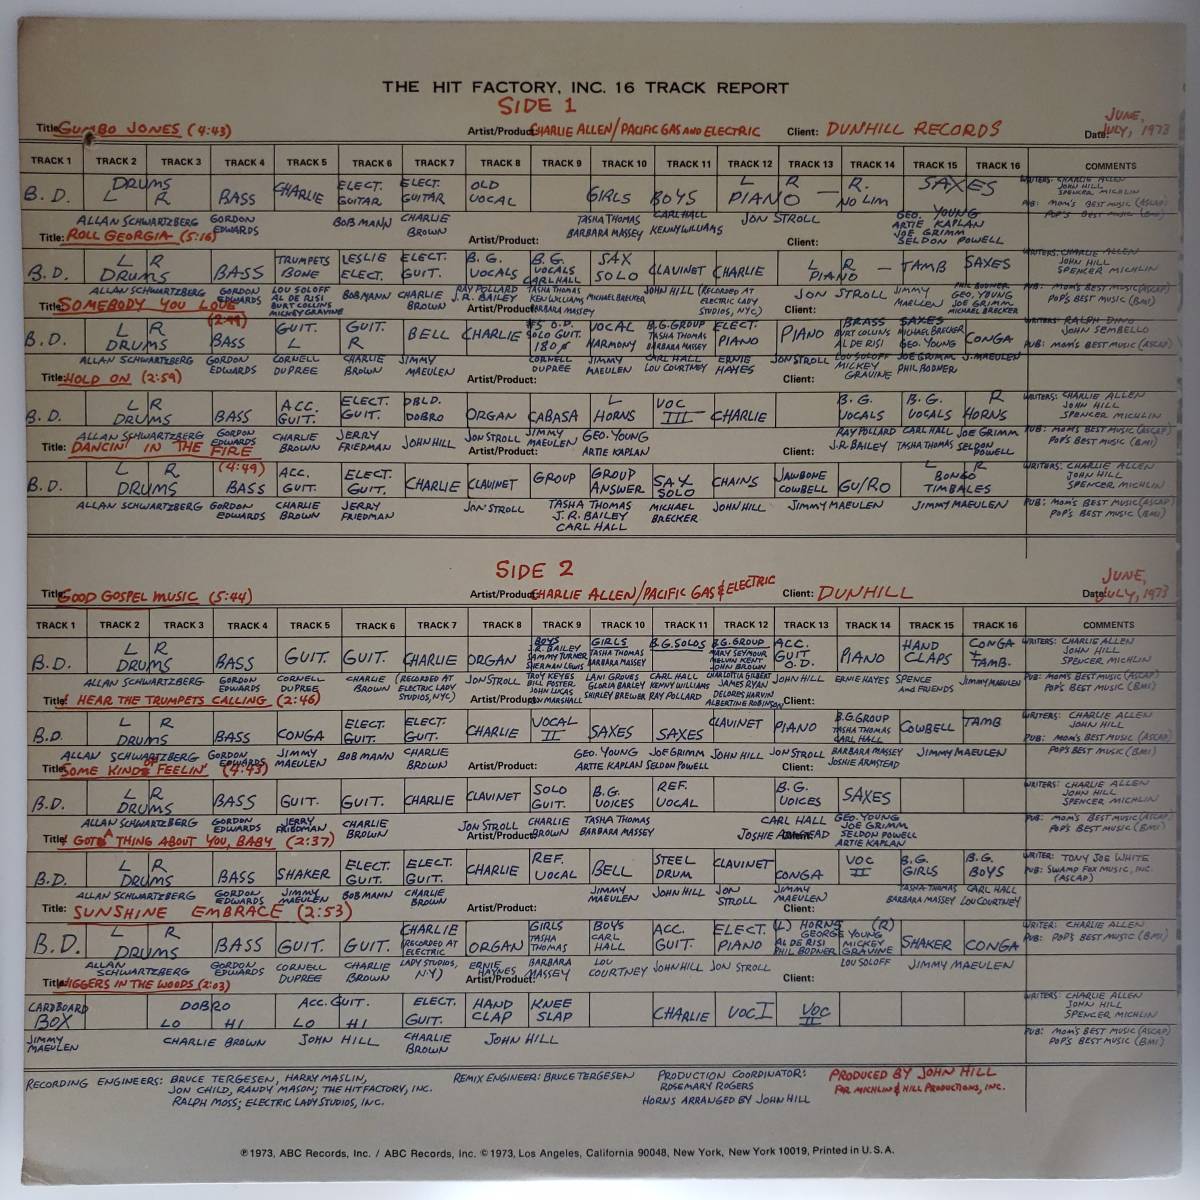 THE HIT FACTORY, INC. 16 TRACK REPORT
SIDE 1
Title: GUMBO JONES (4:43) Artist/Product: CHARLIE ALLEN/PACIFIC GAS AND ELECTRIC Client: DUNHILL RECORDS Date: JUNE, JULY, 1973
TRACK 1 TRACK 2 TRACK 3 TRACK 4 TRACK 5 TRACK 6 TRACK 7 TRACK 8 TRACK 9 TRACK 10 TRACK 11 TRACK 12 TRACK 13 TRACK 14 TRACK 15 TRACK 16 COMMENTS
B.D. DRUMS L R BASS CHARLIE ELECT. GUITAR ELECT. GUITAR OLD VOCAL GIRLS BOYS L PIANO R — R. NO LIM SAXES WRITERS: CHARLIE ALLEN JOHN HILL SPENCER MICHLIN
PUB: MOM'S BEST MUSIC (ASCAP) POP'S BEST MUSIC (BMI)
ALLAN SCHWARTZBERG GORDON EDWARDS BOB MANN CHARLIE BROWN TASHA THOMAS BARBARA MASSEY CARL HALL KENNY WILLIAMS JON STROLL GEO. YOUNG ARTIE KAPLAN JOE GRIMM SELDON POWELL
Title: ROLL GEORGIA (5:16) Artist/Product: Client:
B.D. L R DRUMS BASS TRUMPETS BONE LESLIE ELECT. ELECT. GUIT. B.G. VOCALS B.G. VOCALS CARL HALL SAX SOLO CLAVINET CHARLIE L R PIANO — TAMB SAXES WRITERS: CHARLIE ALLEN JOHN HILL SPENCER MICHLIN
PUB: MOM'S BEST MUSIC (ASCAP) POP'S BEST MUSIC (BMI)
ALLAN SCHWARTZBERG GORDON EDWARDS LOU SOLOFF AL DE RISI BURT COLLINS MICKEY GRAVINE BOB MANN CHARLIE BROWN RAY POLLARD J.R. BAILEY TASHA THOMAS KEN WILLIAMS BARBARA MASSEY MICHAEL BRECKER JOHN HILL (RECORDED AT ELECTRIC LADY STUDIOS, NYC) JON STROLL JIMMY MAEULEN PHIL BODNER GEO. YOUNG JOE GRIMM MICHAEL BRECKER
Title: SOMEBODY YOU LOVE Artist/Product: Client:
B.D. L R DRUMS BASS GUIT. L GUIT. R BELL CHARLIE SOLO GUIT. VOCAL HARMONY B.G. GROUP TASHA THOMAS BARBARA MASSEY ELECT. PIANO PIANO BRASS BURT COLLINS AL DE RISI SAXES MICHAEL BRECKER GEO. YOUNG CONGA WRITERS: RALPH DINO JOHN SEMBELLO
PUB: MOM'S BEST MUSIC (ASCAP)
ALLAN SCHWARTZBERG GORDON EDWARDS CORNELL DUPREE CHARLIE BROWN JIMMY MAEULEN CORNELL DUPREE JIMMY MAEULEN CARL HALL LOU COURTNEY ERNIE HAYES JON STROLL LOU SOLOFF MICKEY GRAVINE JOE GRIMM PHIL BODNER J. MAEULEN
Title: HOLD ON (2:59) Artist/Product: Client:
B.D. L R DRUMS BASS ACC. GUIT. ELECT. GUIT. DBLD. DOBRO ORGAN CABASA L HORNS VOC III CHARLIE B.G. VOCALS B.G. VOCALS R HORNS WRITERS: CHARLIE ALLEN JOHN HILL SPENCER MICHLIN
PUB: MOM'S BEST MUSIC (ASCAP) POP'S BEST MUSIC (BMI)
ALLAN SCHWARTZBERG GORDON EDWARDS CHARLIE BROWN JERRY FRIEDMAN JOHN HILL JON STROLL JIMMY MAEULEN GEO. YOUNG ARTIE KAPLAN RAY POLLARD J.R. BAILEY CARL HALL TASHA THOMAS JOE GRIMM SELDON POWELL
Title: DANCIN' IN THE FIRE (4:49) Artist/Product: Client:
B.D. L R DRUMS BASS ACC. GUIT. ELECT. GUIT. CHARLIE CLAVINET GROUP GROUP ANSWER SAX SOLO CHAINS JAWBONE COWBELL GU/RO L R BONGO TIMBALES WRITERS: CHARLIE ALLEN JOHN HILL SPENCER MICHLIN
PUB: MOM'S BEST MUSIC (ASCAP) POP'S BEST MUSIC (BMI)
ALLAN SCHWARTZBERG GORDON EDWARDS CHARLIE BROWN JERRY FRIEDMAN JON STROLL TASHA THOMAS J.R. BAILEY CARL HALL MICHAEL BRECKER JOHN HILL JIMMY MAEULEN JIMMY MAEULEN
SIDE 2
Title: GOOD GOSPEL MUSIC (5:44) Artist/Product: CHARLIE ALLEN/PACIFIC GAS & ELECTRIC Client: DUNHILL Date: JUNE, JULY, 1973
TRACK 1 TRACK 2 TRACK 3 TRACK 4 TRACK 5 TRACK 6 TRACK 7 TRACK 8 TRACK 9 TRACK 10 TRACK 11 TRACK 12 TRACK 13 TRACK 14 TRACK 15 TRACK 16 COMMENTS
B.D. L R DRUMS BASS GUIT. GUIT. CHARLIE ORGAN BOYS J.R. BAILEY SAMMY TURNER SHERMAN LEWIS GIRLS TASHA THOMAS BARBARA MASSEY B.G. SOLOS B.G. GROUP MARY SEYMOUR MELVIN KENT JOHN BROWN ACC. GUIT O.D. PIANO HAND CLAPS CONGA + TAMB. WRITERS: CHARLIE ALLEN JOHN HILL SPENCER MICHLIN
PUB: MOM'S BEST MUSIC (ASCAP) POP'S BEST MUSIC (BMI)
ALLAN SCHWARTZBERG GORDON EDWARDS CORNELL DUPREE CHARLIE BROWN (RECORDED AT ELECTRIC LADY STUDIOS, NYC) JON STROLL TROY KEYES BILL FOSTER JOHN LUCAS RON MARSHALL LANI GROVES GLORIA BARLEY SHIRLEY BREWER CARL HALL KENNY WILLIAMS RAY POLLARD CHARLOTTIA GILBERT JAMES RYAN DELORES HARVIN ALBERTINE ROBINSON JOHN HILL ERNIE HAYES SPENCE AND FRIENDS JIMMY MAEULEN
Title: HEAR THE TRUMPETS CALLING (2:46) Client:
B.D. L R DRUMS BASS CONGA ELECT. GUIT. ELECT. GUIT. CHARLIE VOCAL II SAXES SAXES CLAVINET PIANO B.G. GROUP TASHA THOMAS CARL HALL COWBELL TAMB WRITERS: CHARLIE ALLEN JOHN HILL
PUB: MOM'S BEST MUSIC (ASCAP) POP'S BEST MUSIC (BMI)
ALLAN SCHWARTZBERG GORDON EDWARDS JIMMY MAEULEN BOB MANN CHARLIE BROWN GEO. YOUNG ARTIE KAPLAN JOE GRIMM SELDON POWELL JOHN HILL JON STROLL BARBARA MASSEY JOSHIE ARMSTEAD JIMMY MAEULEN
Title: SOME KIND OF FEELIN' (4:43) Artist/Product: Client:
B.D. L R DRUMS BASS GUIT. GUIT. CHARLIE CLAVINET SOLO GUIT. B.G. VOICES REF. VOCAL B.G. VOICES SAXES WRITERS: CHARLIE ALLEN JOHN HILL SPENCER MICHLIN
PUB: MOM'S BEST MUSIC (ASCAP) POP'S BEST MUSIC (BMI)
ALLAN SCHWARTZBERG GORDON EDWARDS JERRY FRIEDMAN CHARLIE BROWN JON STROLL CHARLIE BROWN TASHA THOMAS BARBARA MASSEY CARL HALL JOSHIE ARMSTEAD GEO. YOUNG JOE GRIMM SELDON POWELL ARTIE KAPLAN
GOT A THING ABOUT YOU, BABY (2:37) Artist/Product:
B.D. L R DRUMS BASS SHAKER ELECT. GUIT. ELECT. GUIT. CHARLIE REF. VOCAL BELL STEEL DRUM CLAVINET CONGA VOC II B.G. GIRLS B.G. BOYS WRITER: TONY JOE WHITE
PUB: SWAMP FOX MUSIC, INC. (ASCAP)
ALLAN SCHWARTZBERG GORDON EDWARDS JIMMY MAEULEN BOB MANN CHARLIE BROWN JIMMY MAEULEN JOHN HILL JON STROLL JIMMY MAEULEN TASHA THOMAS BARBARA MASSEY CARL HALL LOU COURTNEY
Title: SUNSHINE EMBRACE (2:53) Artist/Product: Client:
B.D. L R DRUMS BASS GUIT. GUIT. CHARLIE (RECORDED AT ELECTRIC LADY STUDIOS, NY) ORGAN GIRLS TASHA THOMAS BOYS CARL HALL ACC. GUIT. ELECT. PIANO (L) HORNS (R) AL DE RISI PHIL BODNER GEORGE YOUNG MICKEY GRAVINE SHAKER CONGA WRITER: CHARLIE ALLEN
PUB: POP'S BEST MUSIC (BMI)
ALLAN SCHWARTZBERG GORDON EDWARDS CORNELL DUPREE CHARLIE BROWN ERNIE HAYNES BARBARA MASSEY LOU COURTNEY JOHN HILL JON STROLL LOU SOLOFF JIMMY MAEULEN
IN THE WOODS (2:03) Artist/Product: Client:
CARDBOARD BOX DOBRO LO HI ACC. GUIT. LO HI ELECT. GUIT. HAND CLAP KNEE SLAP CHARLIE VOC I VOC II WRITERS: CHARLIE ALLEN JOHN HILL SPENCER MICHLIN
PUB: MOM'S BEST MUSIC (ASCAP) POP'S BEST MUSIC (BMI)
JIMMY MAEULEN CHARLIE BROWN JOHN HILL CHARLIE BROWN JOHN HILL
RECORDING ENGINEERS: BRUCE TERGESEN, HARRY MASLIN, JON CHILD, RANDY MASON; THE HIT FACTORY, INC.
RALPH MOSS; ELECTRIC LADY STUDIOS, INC.
REMIX ENGINEER: BRUCE TERGESEN
PRODUCTION COORDINATOR: ROSEMARY ROGERS
HORNS ARRANGED BY JOHN HILL
PRODUCED BY JOHN HILL
FOR MICHLIN & HILL PRODUCTIONS, INC.
℗1973, ABC Records, Inc. / ABC Records, Inc. ©1973, Los Angeles, California 90048, New York, New York 10019, Printed in U.S.A.